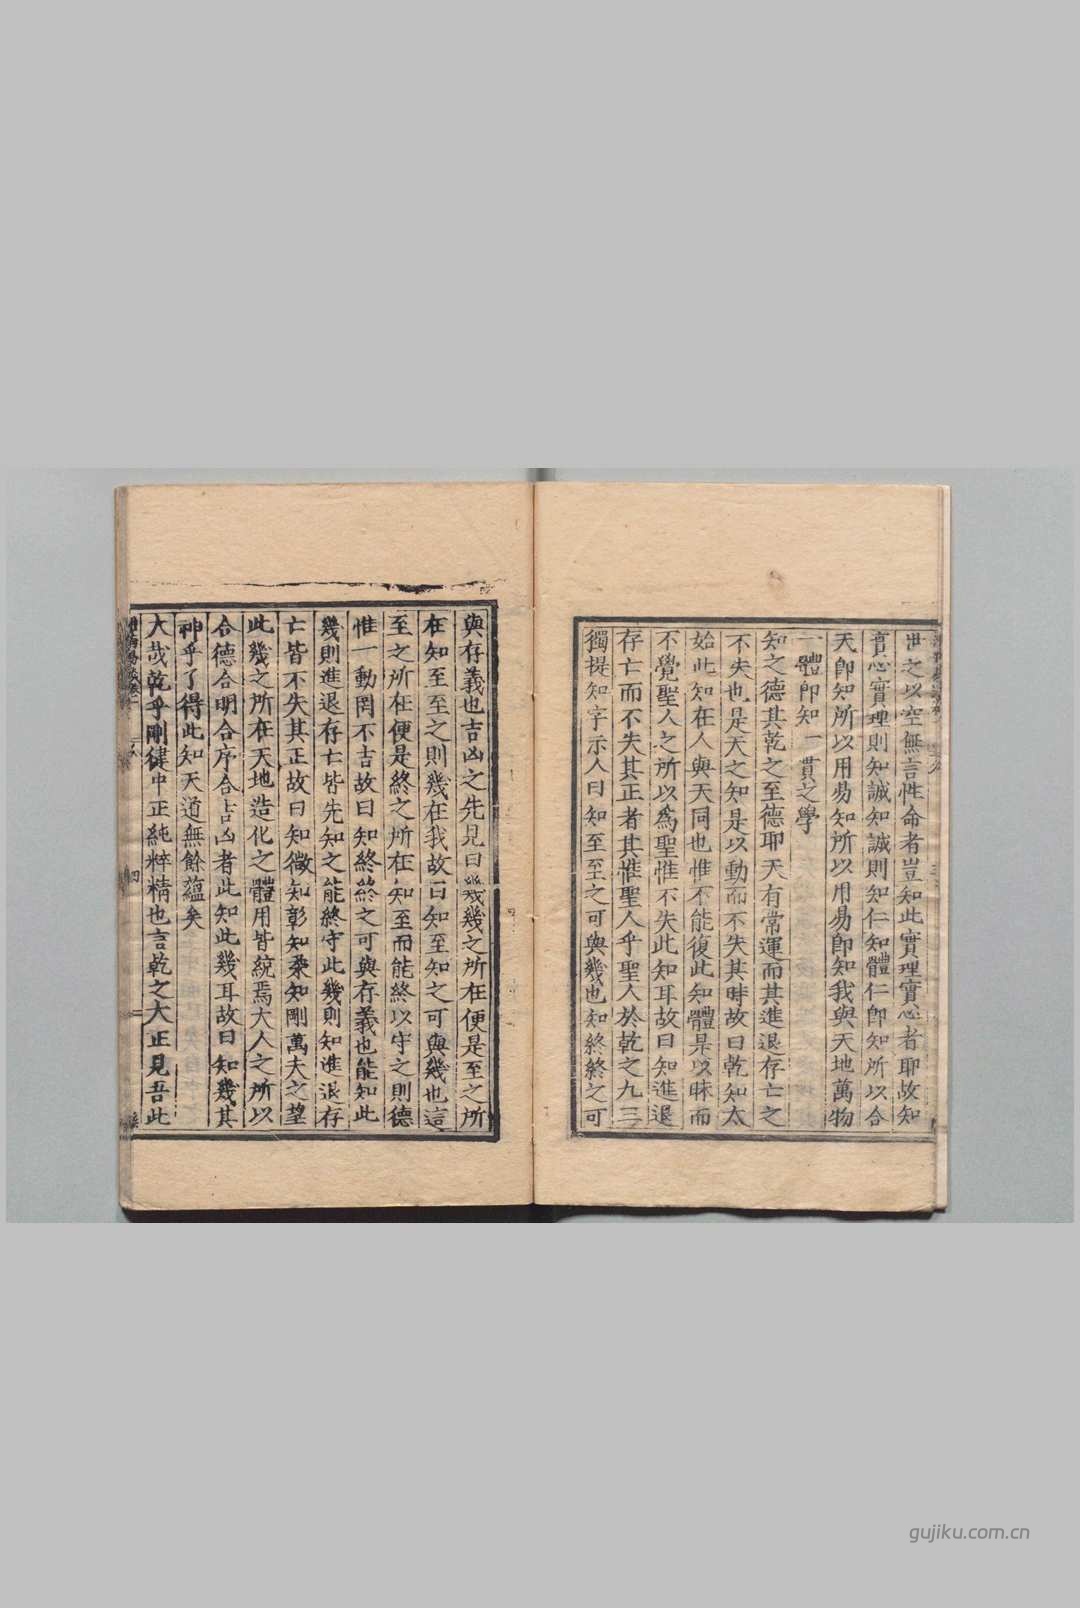 世之以空無言性命者豈知此實理實心者耶故知
實心實理則知誠知誠則知仁知體仁即知所以合
天即知所以用易知所以用易即知我與天地萬物
一體即知一貫之學
知之德其乾之至德耶天有常運而其進退存亡之
不失也是天之知是以動而不失其時故曰乾知太
始此知在人與天同也惟不能復此知體是以昧而
不覺聖人之所以為聖惟不失此知耳故曰知進退
存亡而不失其正者其惟聖人乎聖人於乾之九三
獨提知字示人曰知至至之可與幾也知終終之可
與存義也吉凶之先見曰幾幾之所在便是至之所
在知至至之則幾在我故曰知至知之可與幾也這
至之所在便是終之所在知至而能終以守之則德
惟一動罔不吉故曰知終終之可與存義也能知此
幾則進退存亡皆先知之能終守此幾則知進退存
亡皆不失其正故曰知微知彰知柔知剛萬夫之望
此幾之所在天地造化之體用皆統焉大人之所以
合德合明合序合吉凶者此知此幾耳故曰知幾其
神乎了得此知天道無餘蘊矣
大哉乾乎剛健中正純粹精也言乾之大正見吾此
四
gujiku.com.cn